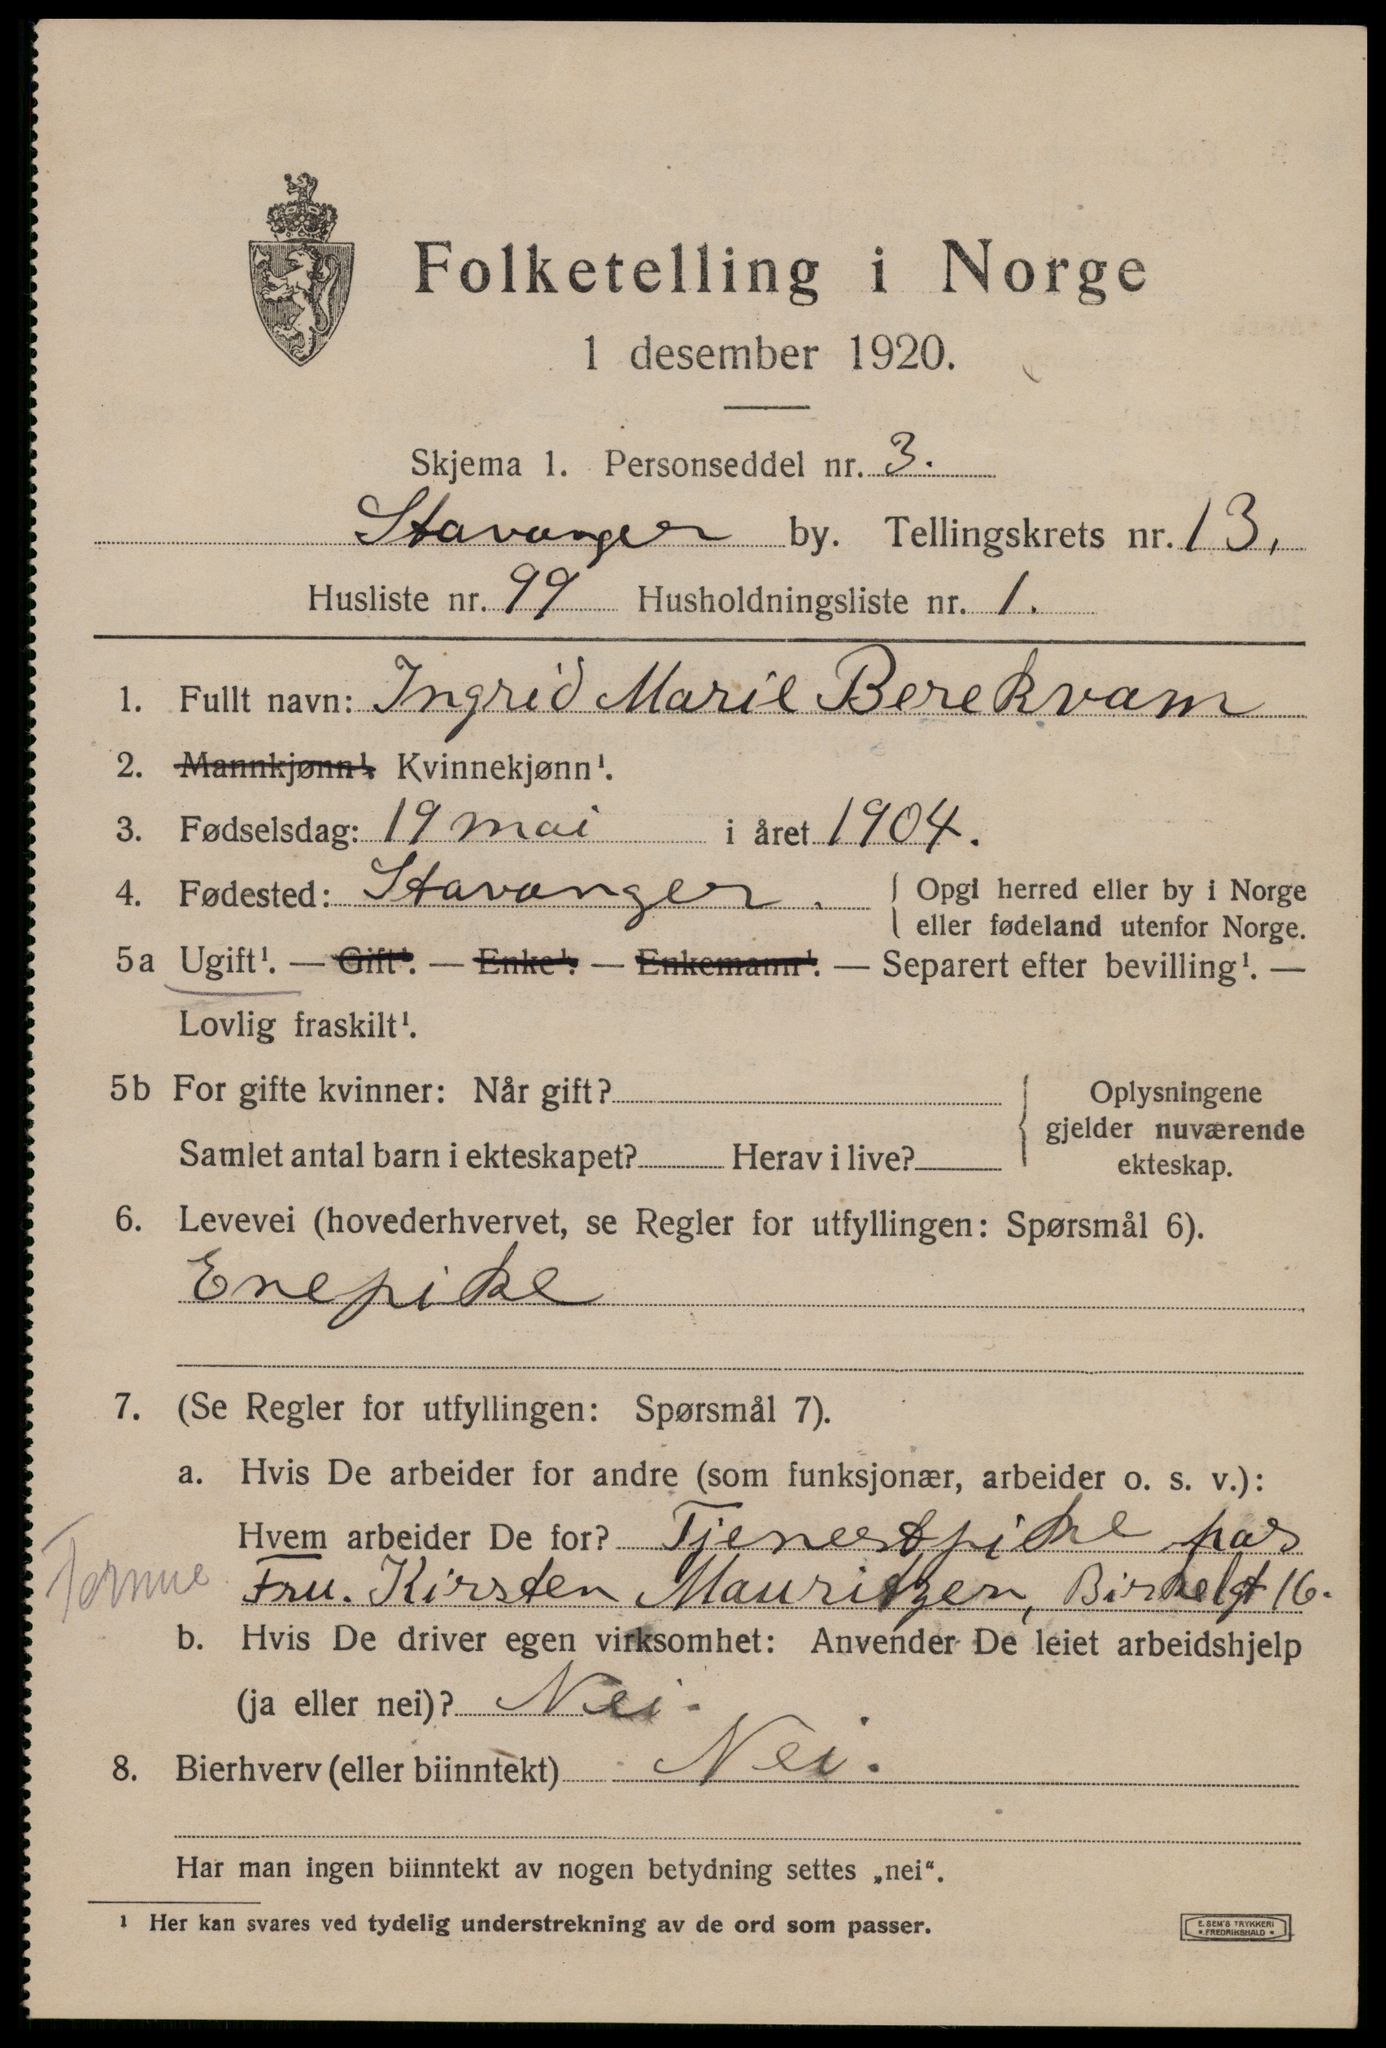 Folketelling i Norge
1 desember 1920.
Skjema 1. Personseddel nr. 3.
Stavanger by. Tellingskrets nr. 13.
Husliste nr. 99 Husholdningsliste nr. 1.
1. Fullt navn: Ingrid Marie Berekvam
2. Mannkjønn¹. Kvinnekjønn¹.
3. Fødselsdag: 19 mai i året 1904.
4. Fødested: Stavanger. { Opgi herred eller by i Norge
eller fødeland utenfor Norge.
5a Ugift¹. — Gift¹. — Enke¹. — Enkemann¹. — Separert efter bevilling¹. —
Lovlig fraskilt¹.
5b For gifte kvinner: Når gift?
Samlet antal barn i ekteskapet? Herav i live?
Oplysningene
gjelder nuværende
ekteskap.
6. Levevei (hovederhvervet, se Regler for utfyllingen: Spørsmål 6).
Enepike
7. (Se Regler for utfyllingen: Spørsmål 7).
a. Hvis De arbeider for andre (som funksjonær, arbeider o. s. v.):
Hvem arbeider De for? Tjenestpike hos
Fru. Kirsten Mauritzen, Birkelgt 16.
b. Hvis De driver egen virksomhet: Anvender De leiet arbeidshjelp
(ja eller nei)? Nei.
8. Bierhverv (eller biinntekt) Nei.
Har man ingen biinntekt av nogen betydning settes „nei“.
¹ Her kan svares ved tydelig understrekning av de ord som passer.
E. SEM'S TRYKKERI
* FREDRIKSHALD *